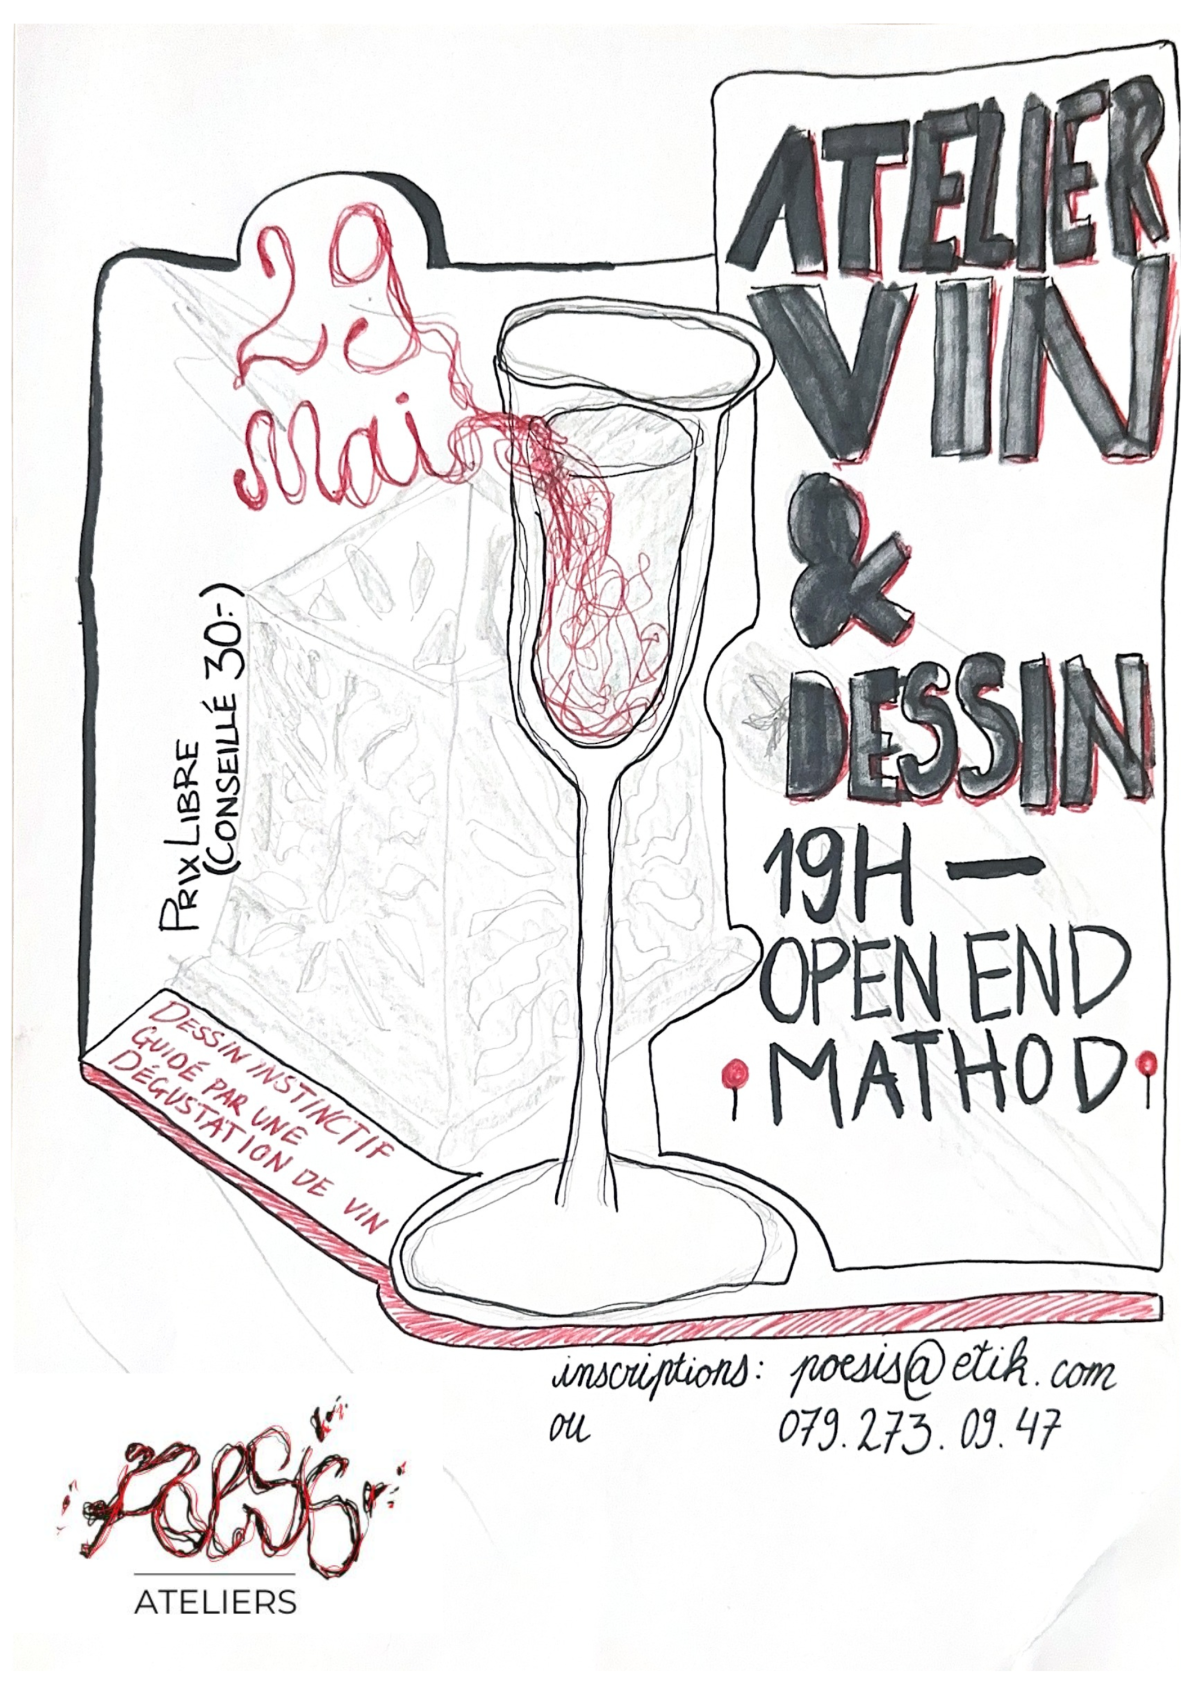 ATELIER
VIN
&
DESSIN
19H —
OPEN END
MATHOD
29
Mai
PRIX LIBRE
(CONSEILLÉ 30.-)
DESSIN INSTINCTIF
GUIDÉ PAR UNE
DÉGUSTATION DE VIN
inscriptions: poesis@etik.com
ou 079.273.09.47
POESIS
ATELIERS